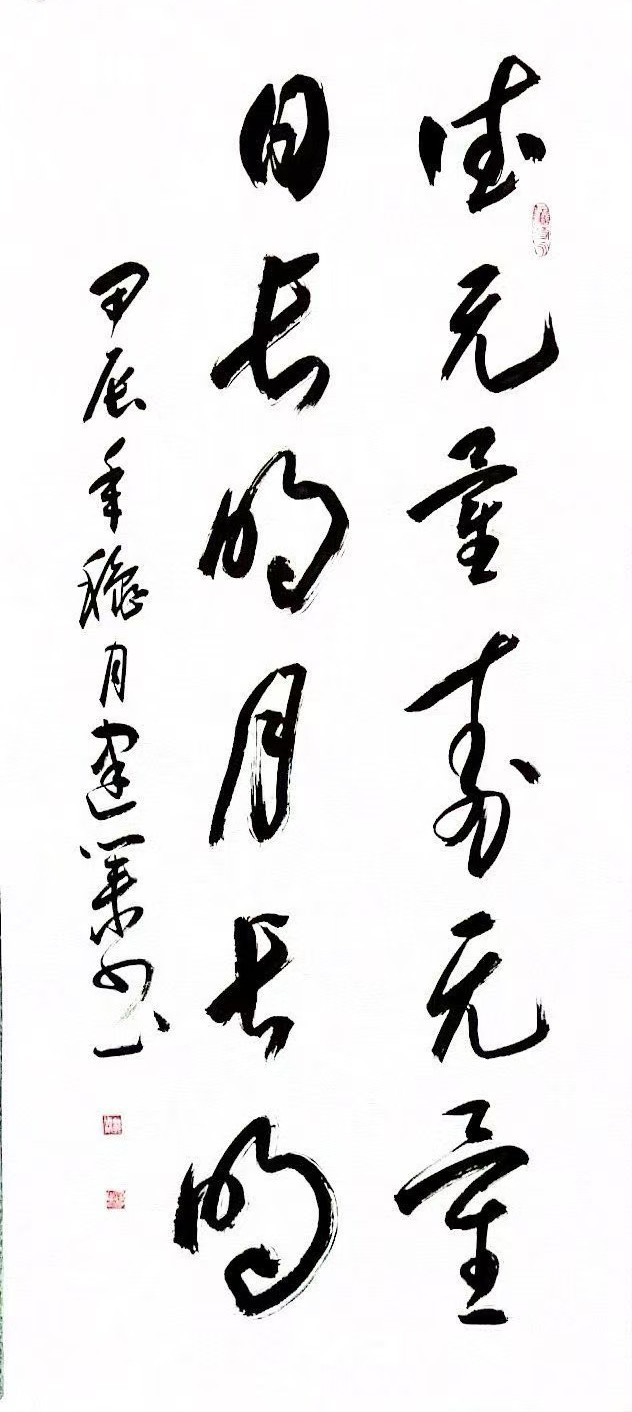 德无量寿无量
日长明月长明
甲辰年穐月建業书